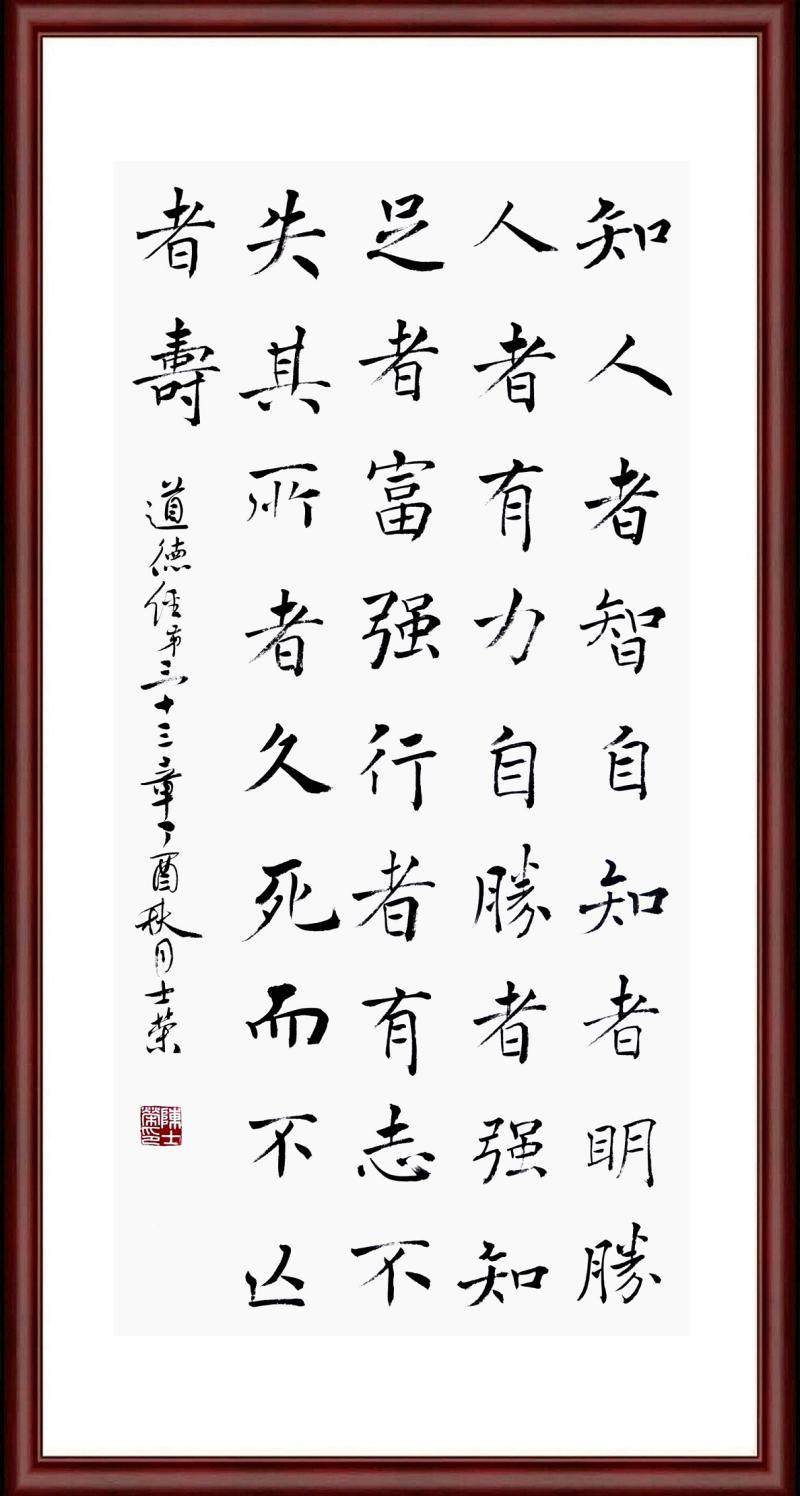 知人者智自知者明勝
人者有力自勝者强知
足者富强行者有志不
失其所者久死而不亡
者壽
道德経第三十三章丁酉秋月士榮
陳士榮印